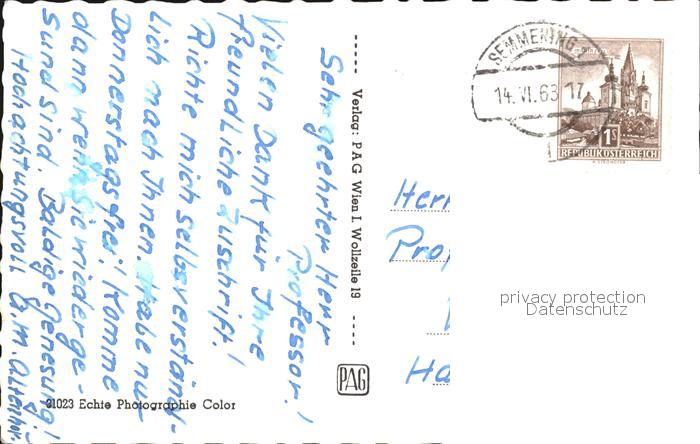 Sehr geehrter Herr
Professor!
Vielen Dank für Ihre
freundliche Zuschrift!
Richte mich selbsverständ-
lich nach Ihnen. Habe nur
Donnerstags frei! Komme
dann wenn Sie wieder ge-
sund sind. Baldige Genesung!
Hochachtungsvoll
Verlag: PAG Wien I. Wollzeile 19
PAG
31023 Echte Photographie Color
SEMMERING
14. VI. 63 17
1S
REPUBLIK ÖSTERREICH
Herr
Prof
Ha
privacy protection
Datenschutz